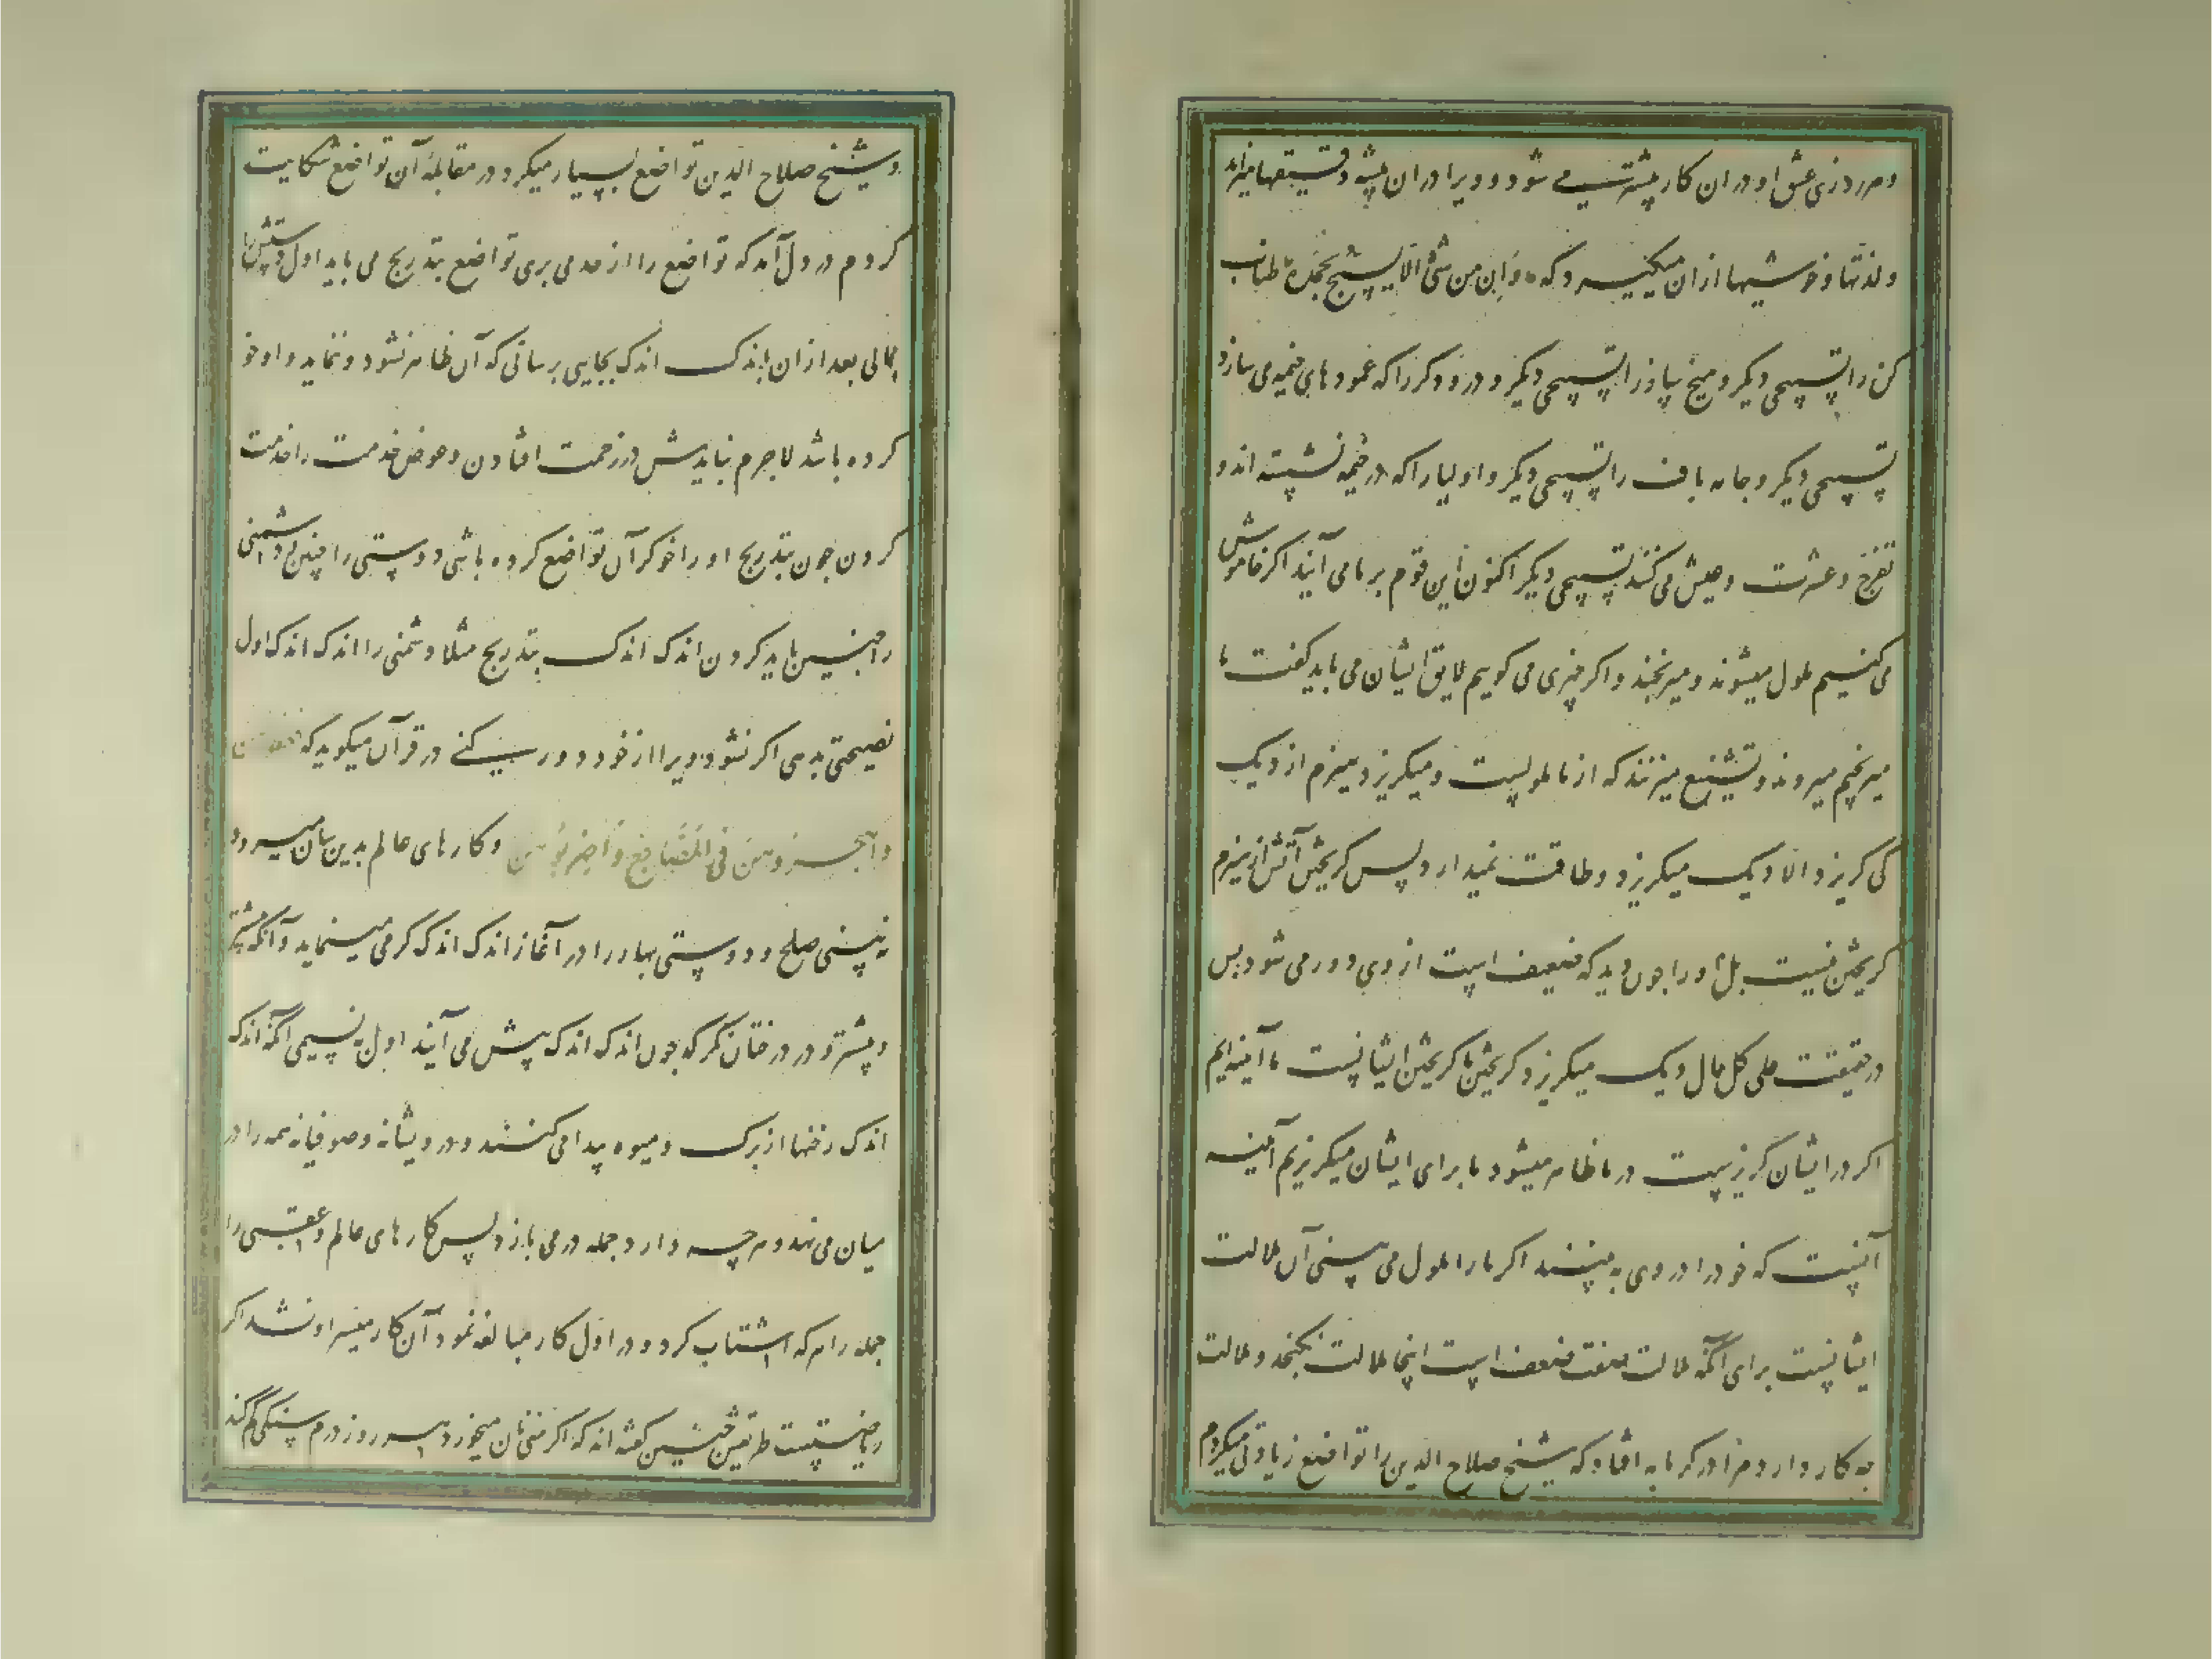 و هر روزی عشق او در ان کار بیشتر می شود و ویرا در ان پیشه دقیقها میزاید
و لذتها و خوشیها از ان میگیرد که و ان من شئ الا یسبح بحمده طناب
کن را تسبیحی دیگر و میخ ساز را تسبیحی دیگر و درودگر را که عمودهای خیمه می سازد
تسبیحی دیگر و جامه باف را تسبیحی دیگر و اولیا را که در خیمه نشسته اند و
تفرج و عشرت و عیش می کنند تسبیحی دیگر اکنون این قوم بر ما می آیند اگر خاموش
می کنیم ملول میشوند و میرنجند و اگر چیزی می گوییم لایق ایشان می باید گفت ما
میرنجیم میروند و تشنیع میزنند که از ما ملولست و میگریزد هیزم از دیک
کی گریزد الا دیک میگریزد و طاقت نمیدارد پس گریختن آتش از هیزم
گریختن نیست بل او را چون دید که ضعیف است از وی دور می شود پس
در حقیقت علی کل حال دیک میگریزد گریختن ما گریختن ایشانست ما آینه ایم
اگر در ایشان گریزیست در ما ظاهر میشود ما برای ایشان میگریزیم آینه
آنیست که خود را در وی به بینند اگر ما را ملول می بینی آن ملالت
ایشانست برای آنکه ملالت صفت ضعف است اینجا ملالت نگنجد و ملالت
چه کار دارد مرا در گرمابه افتاد که شیخ صلاح الدین را تواضع زیادتی میکردم
و شیخ صلاح الدین تواضع بسیار میکرد و در مقابله آن تواضع شکایت
کردم در دل آمد که تواضع را از حد می بری تواضع بتدریج می باید اول دستش را
بمالی بعد از ان باندک اندک بجایی برسانی که آن ظاهر نشود و ننماید و او خو
کرده باشد لاجرم نبایدش در زحمت افتادن و عوض خدمت را خدمت
کردن چون بتدریج او را خوگر آن تواضع کرده باشی دوستی را چنین و دشمنی
را چنین باید کردن اندک اندک بتدریج مثلا دشمنی را اندک اندک اول
نصیحتی بدهی اگر نشود ویرا از خود دور کنی در قرآن میگوید که فعظوهن
و اهجروهن فی المضاجع و اضربوهن و کارهای عالم بدین سان میرود
نه بینی صلح و دوستی بهار را در آغاز اندک اندک گرمی مینماید و آنگه بیشتر
و بیشتر و در درختان نگر که چون اندک اندک پیش می آیند اول تبسمی آنگه اندک
اندک رختها از برگ و میوه پیدا می کنند و درویشانه و صوفیانه همه را در
میان می نهد و هر چه دارد جمله در می بازد پس کارهای عالم و عقبی را
جمله را هر که اشتاب کرد و در اول کار مبالغه نمود آن کار میسر او نشد اگر
ریاضتست طریقش چنین گفته اند که اگر منی نان میخورد هر روز درم سنگی کم کند